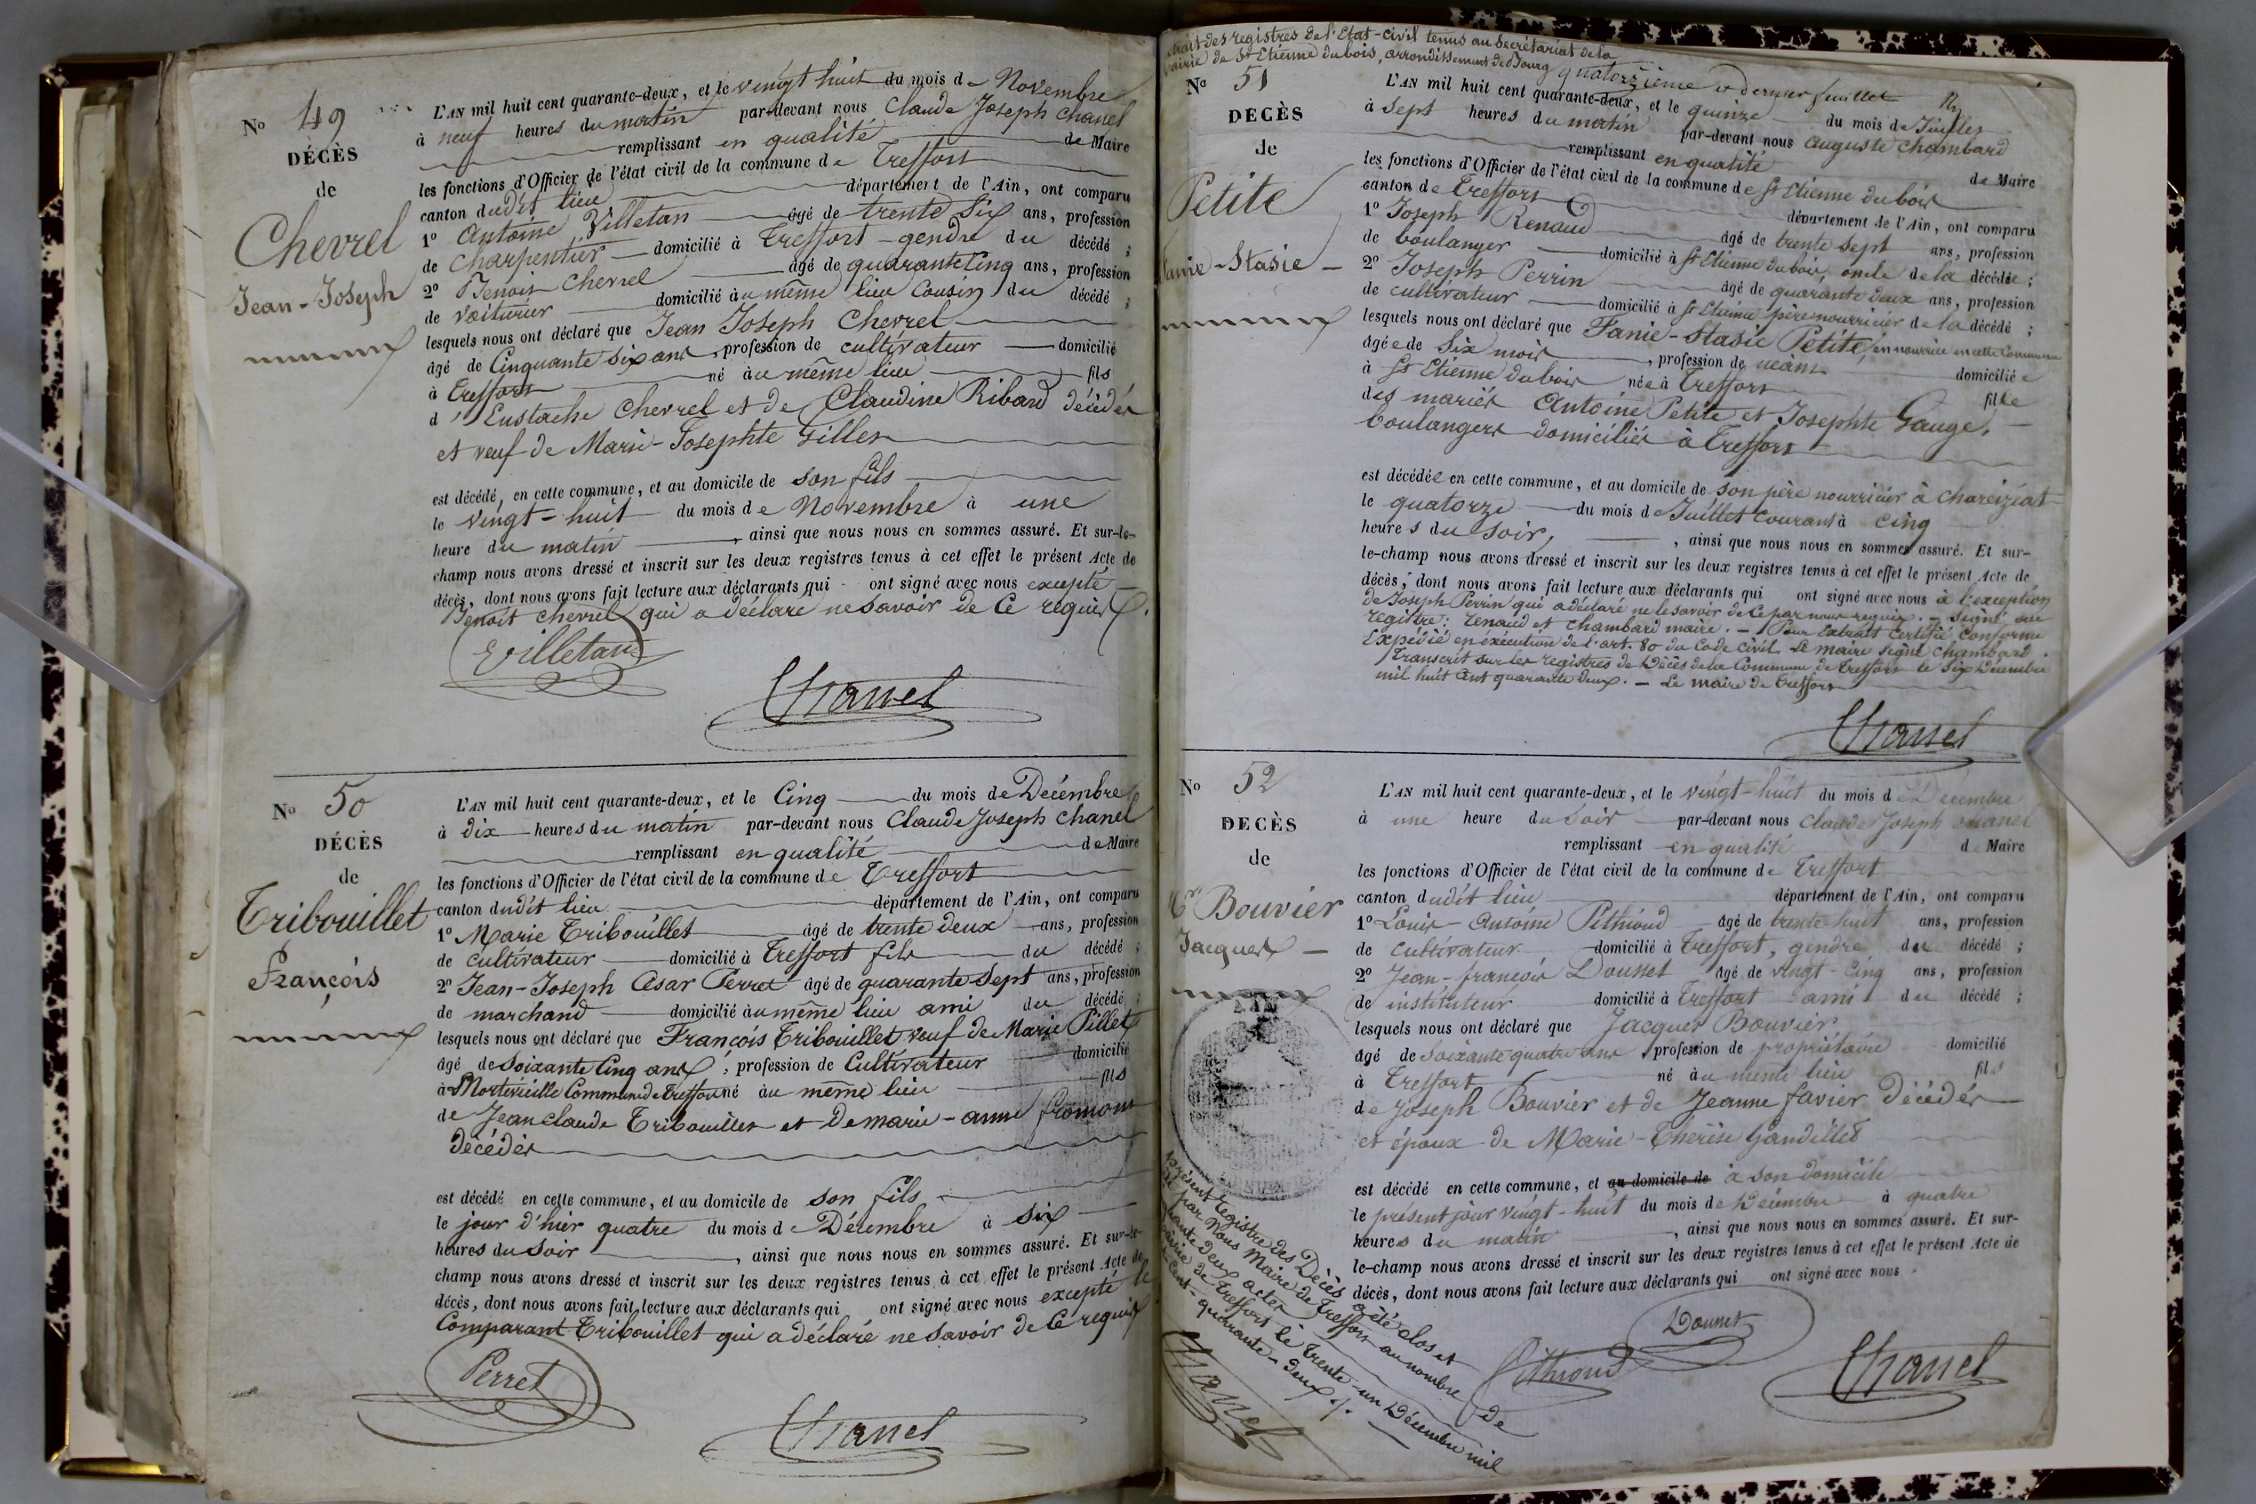 No 49
DÉCÈS
de
Chevrel
Jean-Joseph
L'AN mil huit cent quarante-deux, et le vingt huit du mois de Novembre
à neuf heures du matin par-devant nous Claude Joseph Chanel
remplissant en qualité de Maire
les fonctions d'Officier de l'état civil de la commune de Treffort
canton dudit lieu département de l'Ain, ont comparu
1o Antoine Villetan âgé de trente six ans, profession
de charpentier domicilié à Treffort gendre du décédé ;
2o Benoit Chevrel âgé de quarante Cinq ans, profession
de voiturier domicilié au même lieu Cousin du décédé ;
lesquels nous ont déclaré que Jean Joseph Chevrel
âgé de Cinquante six ans, profession de cultivateur domicilié
à Treffort né au même lieu fils
d'Eustache Chevrel et de Claudine Ribard décédés
et veuf de Marie-Josephte Gilles
est décédé, en cette commune, et au domicile de son fils
le vingt-huit du mois de Novembre à une
heure du matin, ainsi que nous nous en sommes assuré. Et sur-le-
champ nous avons dressé et inscrit sur les deux registres tenus à cet effet le présent Acte de
décès, dont nous avons fait lecture aux déclarants qui ont signé avec nous excepté
Benoit Chevrel qui a déclaré ne savoir de ce requis.
Villetan
Chanel
No 50
DÉCÈS
de
Tribouillet
François
L'AN mil huit cent quarante-deux, et le Cinq du mois de Décembre
à dix heures du matin par-devant nous Claude Joseph Chanel
remplissant en qualité de Maire
les fonctions d'Officier de l'état civil de la commune de Treffort
canton dudit lieu département de l'Ain, ont comparu
1o Marie Tribouillet âgé de trente deux ans, profession
de cultivateur domicilié à Treffort fils du décédé ;
2o Jean-Joseph César Perret âgé de quarante-sept ans, profession
de marchand domicilié au même lieu ami du décédé ;
lesquels nous ont déclaré que François Tribouillet veuf de Marie Pillet
âgé de soixante Cinq ans, profession de Cultivateur domicilié
à Commune de Treffort né au même lieu fils
de Jean Claude Tribouillet et de marie-anne fromont
décédés
est décédé en cette commune, et au domicile de son fils,
le jour d'hier quatre du mois de Décembre à six
heures du soir, ainsi que nous nous en sommes assuré. Et sur-le-
champ nous avons dressé et inscrit sur les deux registres tenus à cet effet le présent Acte de
décès, dont nous avons fait lecture aux déclarants qui ont signé avec nous excepté le
Comparant Tribouillet qui a déclaré ne savoir de ce requis
Perret
Chanel
Extrait des registres de l'Etat-civil tenus au secrétariat de la
mairie de St Etienne du bois, arrondissement de Bourg
quatorzième & dernier feuillet
No 51
DÉCÈS
de
Petite
Fanie-Stasie
L'AN mil huit cent quarante-deux, et le quinze du mois de Juillet
à sept heures du matin par-devant nous Auguste Chambard
remplissant en qualité de Maire
les fonctions d'Officier de l'état civil de la commune de St Etienne du bois
canton de Treffort département de l'Ain, ont comparu
1o Joseph Renaud âgé de trente sept ans, profession
de boulanger domicilié à St Etienne du bois, oncle de la décédée ;
2o Joseph Perrin âgé de quarante deux ans, profession
de cultivateur domicilié à St Etienne père nourricier de la décédé ;
lesquels nous ont déclaré que Fanie-Stasie Petite, en nourrice en cette Commune
âgée de six mois, profession de néant domiciliée
à St Etienne du bois née à Treffort fille
des mariés Antoine Petite et Josephte Gauge,
boulangers domiciliés à Treffort
est décédée en cette commune, et au domicile de son père nourricier à Chareiziat
le quatorze du mois de Juillet courant à cinq
heures du soir, ainsi que nous nous en sommes assuré. Et sur-
le-champ nous avons dressé et inscrit sur les deux registres tenus à cet effet le présent Acte de
décès, dont nous avons fait lecture aux déclarants qui ont signé avec nous à l'exception
de Joseph Perrin qui a déclaré ne le savoir de ce par nous requis. - Signé au
registre : Renaud et Chambard maire. - Pour Extrait certifié conforme
Expédié en exécution de l'art. 80 du Code civil. Le maire signé Chambard.
Transcrit sur les registres de Décès de la Commune de Treffort le six Décembre
mil huit cent quarante deux. - Le maire de Treffort
Chanel
No 52
DÉCÈS
de
Bouvier
Jacques
L'AN mil huit cent quarante-deux, et le vingt-huit du mois de Décembre
à une heure du soir par-devant nous Claude Joseph Chanel
remplissant en qualité de Maire
les fonctions d'Officier de l'état civil de la commune de Treffort
canton dudit lieu département de l'Ain, ont comparu
1o Louis-Antoine Pithioud âgé de trente huit ans, profession
de cultivateur domicilié à Treffort, gendre du décédé ;
2o Jean-françois Dousset âgé de vingt-Cinq ans, profession
de instituteur domicilié à Treffort ami du décédé ;
lesquels nous ont déclaré que Jacques Bouvier
âgé de soixante quatre ans, profession de propriétaire domicilié
à Treffort né au même lieu fils
de Joseph Bouvier et de Jeanne favier décédés
et époux de Marie-Thérèse Gandillet
est décédé en cette commune, et au domicile de à son domicile
le présent jour vingt-huit du mois de Décembre à quatre
heures du matin, ainsi que nous nous en sommes assuré. Et sur-
le-champ nous avons dressé et inscrit sur les deux registres tenus à cet effet le présent Acte de
décès, dont nous avons fait lecture aux déclarants qui ont signé avec nous.
Pithioud
Chanel
présent registre des Décès a été clos et
par nous Maire de Treffort au nombre de
deux actes
de Treffort le trente-un Décembre mil
cent-quarante-deux
Chanel